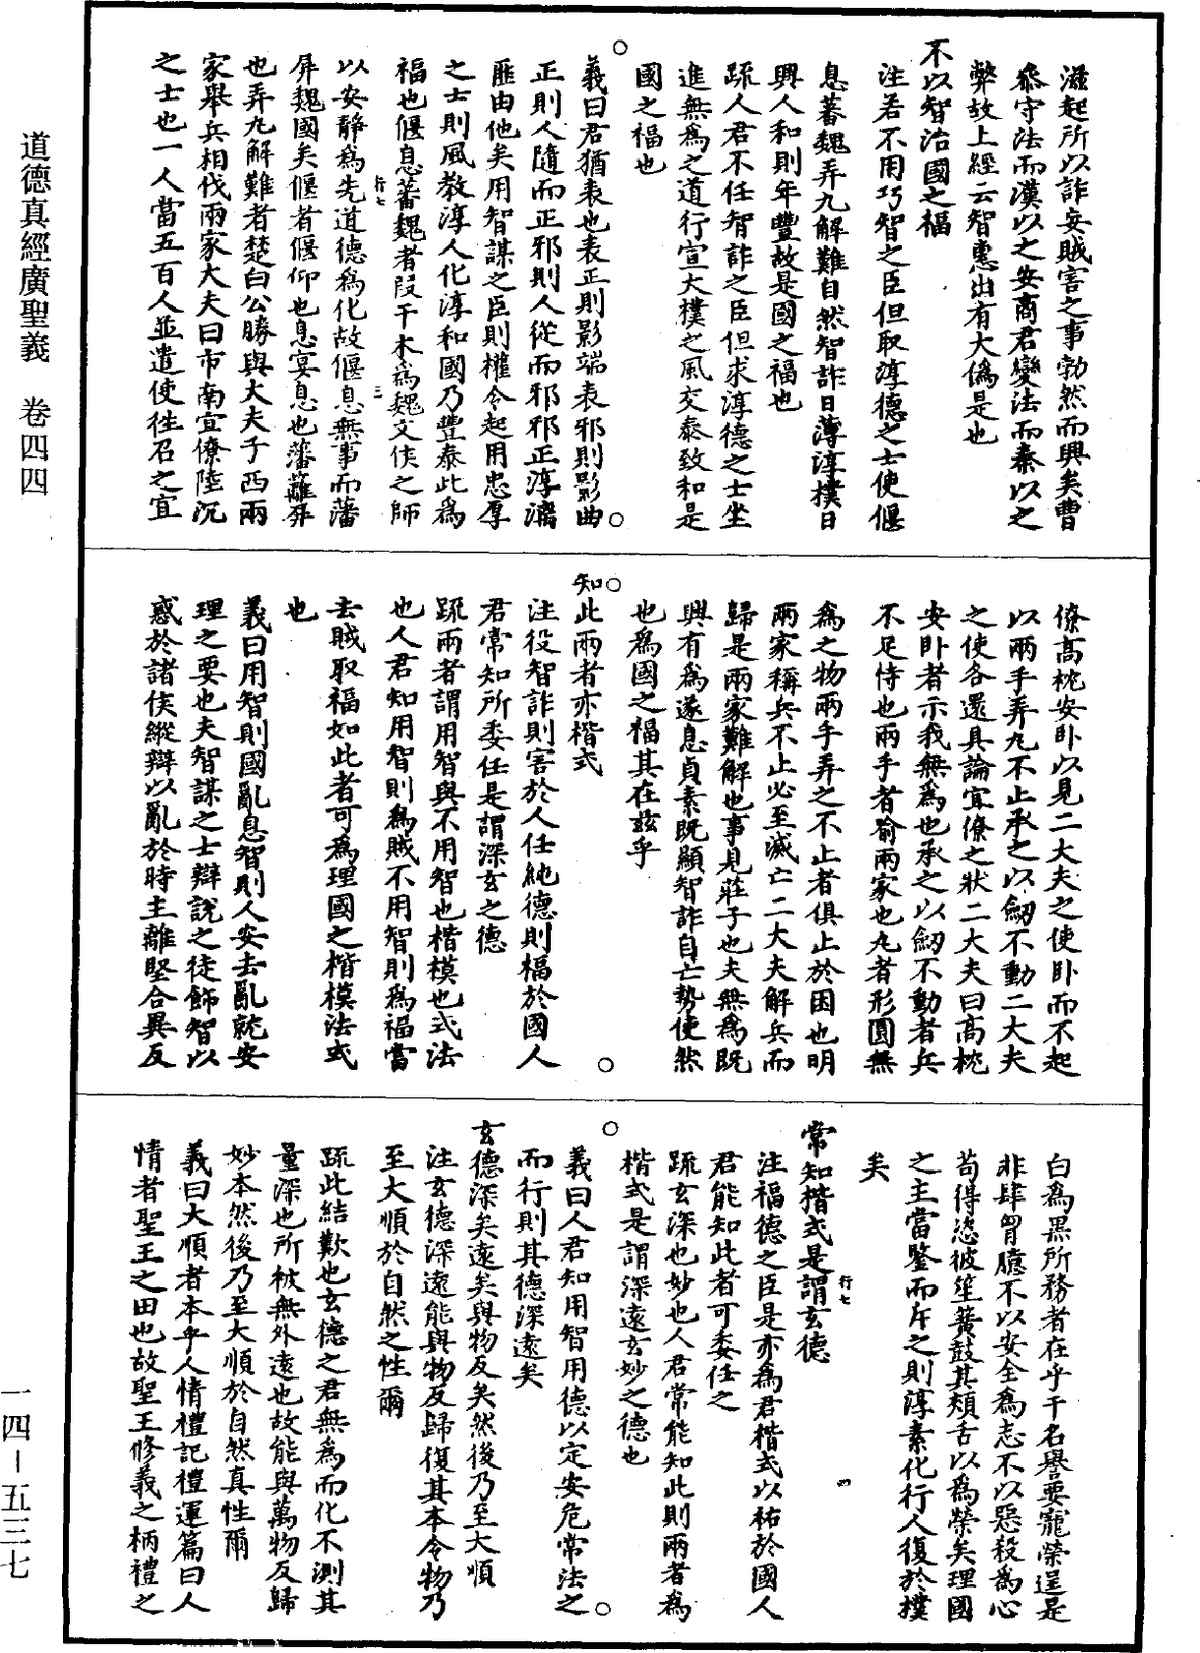 道德真經廣聖義　卷四四
滋起所以詐妄賊害之事勃然而興矣曹
叅守法而漢以之安商君變法而秦以之
弊故上經云智惠出有大僞是也
不以智治國之福
注若不用巧智之臣但取淳德之士使偃
息蕃魏弄丸解難自然智詐日薄淳樸日
興人和則年豐故是國之福也
疏人君不任智詐之臣但求淳德之士坐
進無爲之道行宣大樸之風交泰致和是
國之福也
義曰君猶表也表正則影端表邪則影曲
正則人隨而正邪則人從而邪邪正淳漓
匪由他矣用智謀之臣則權令起用忠厚
之士則風教淳人化淳和國乃豐泰此爲
福也偃息蕃魏者段干木爲魏文侯之師
行七
三
以安靜爲先道德爲化故偃息無事而藩
屏魏國矣偃者偃仰也息宴息也藩蘺屏
也弄丸解難者楚白公勝與大夫子西兩
家舉兵相伐兩家大夫曰市南宜僚陸沉
之士也一人當五百人並遣使往召之宜
僚高枕安卧以見二大夫之使卧而不起
以兩手弄丸不止承之以劒不動二大夫
之使各還具論宜僚之狀二大夫曰高枕
安卧者示我無爲也承之以劒不動者兵
不足恃也兩手者喻兩家也丸者形圓無
爲之物兩手弄之不止者俱止於困也明
兩家稱兵不止必至滅亡二大夫解兵而
歸是兩家難解也事見莊子也夫無爲既
興有爲遂息貞素既顯智詐自亡勢使然
也爲國之福其在玆乎
知此兩者亦楷式
注役智詐則害於人任純德則福於國人
君常知所委任是謂深玄之德
疏兩者謂用智與不用智也楷模也式法
也人君知用智則爲賊不用智則爲福當
去賊取福如此者可爲理國之楷模法式
也
義曰用智則國亂息智則人安去亂就安
理之要也夫智謀之士辯說之徒飾智以
惑於諸侯縱辯以亂於時主離堅合異反
白爲黑所務者在乎干名譽要寵榮逞是
非肆胷臆不以安全爲志不以惡殺爲心
苟得恣彼笙簧鼓其頰舌以爲榮矣理國
之主當鑒而斥之則淳素化行人復於樸
矣
常知楷式是謂玄德
行七
四
注福德之臣是亦爲君楷式以祐於國人
君能知此者可委任之
疏玄深也妙也人君常能知此則兩者爲
楷式是謂深遠玄妙之德也
義曰人君知用智用德以定安危常法之
而行則其德深遠矣
玄德深矣遠矣與物反矣然後乃至大順
注玄德深遠能與物反歸復其本令物乃
至大順於自然之性爾
疏此結歎也玄德之君無爲而化不測其
量深也所被無外遠也故能與萬物反歸
妙本然後乃至大順於自然真性爾
義曰大順者本乎人情禮記禮運篇曰人
情者聖王之田也故聖王修義之柄禮之
一四－五三七